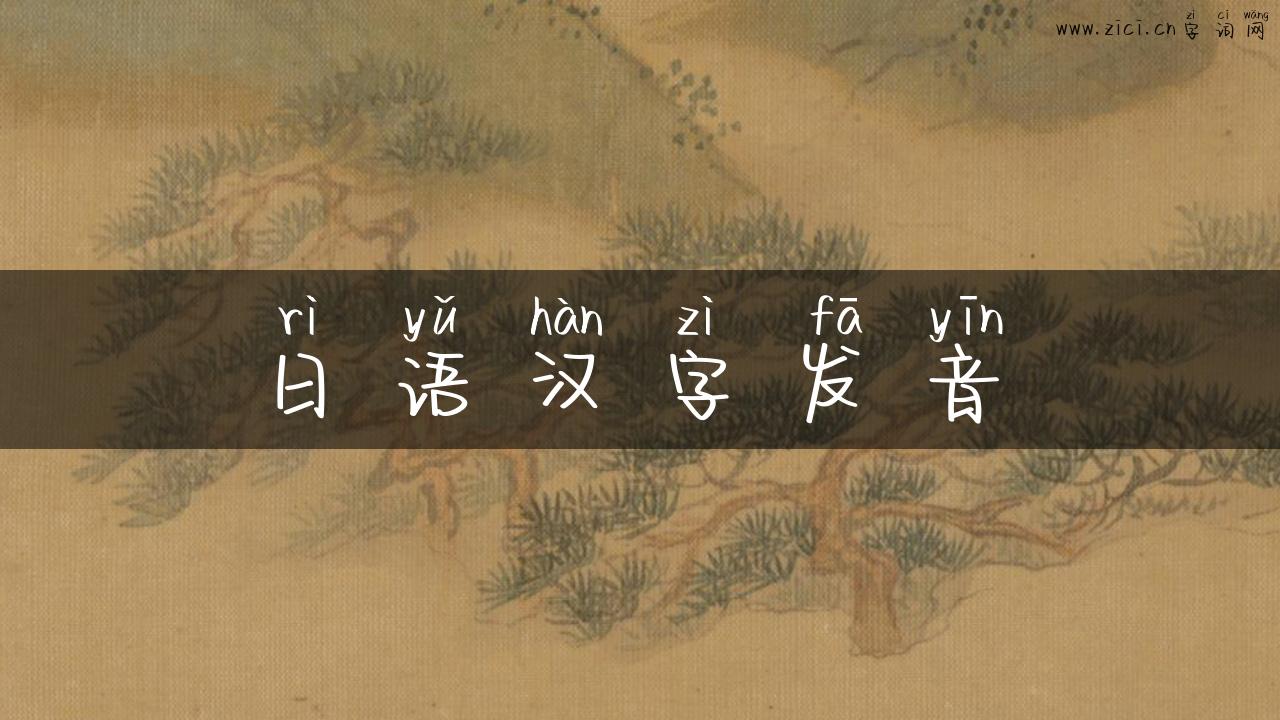 zì cí wǎng
www.zici.cn 字 词 网
rì yǔ hàn zì fā yīn
日 语 汉 字 发 音